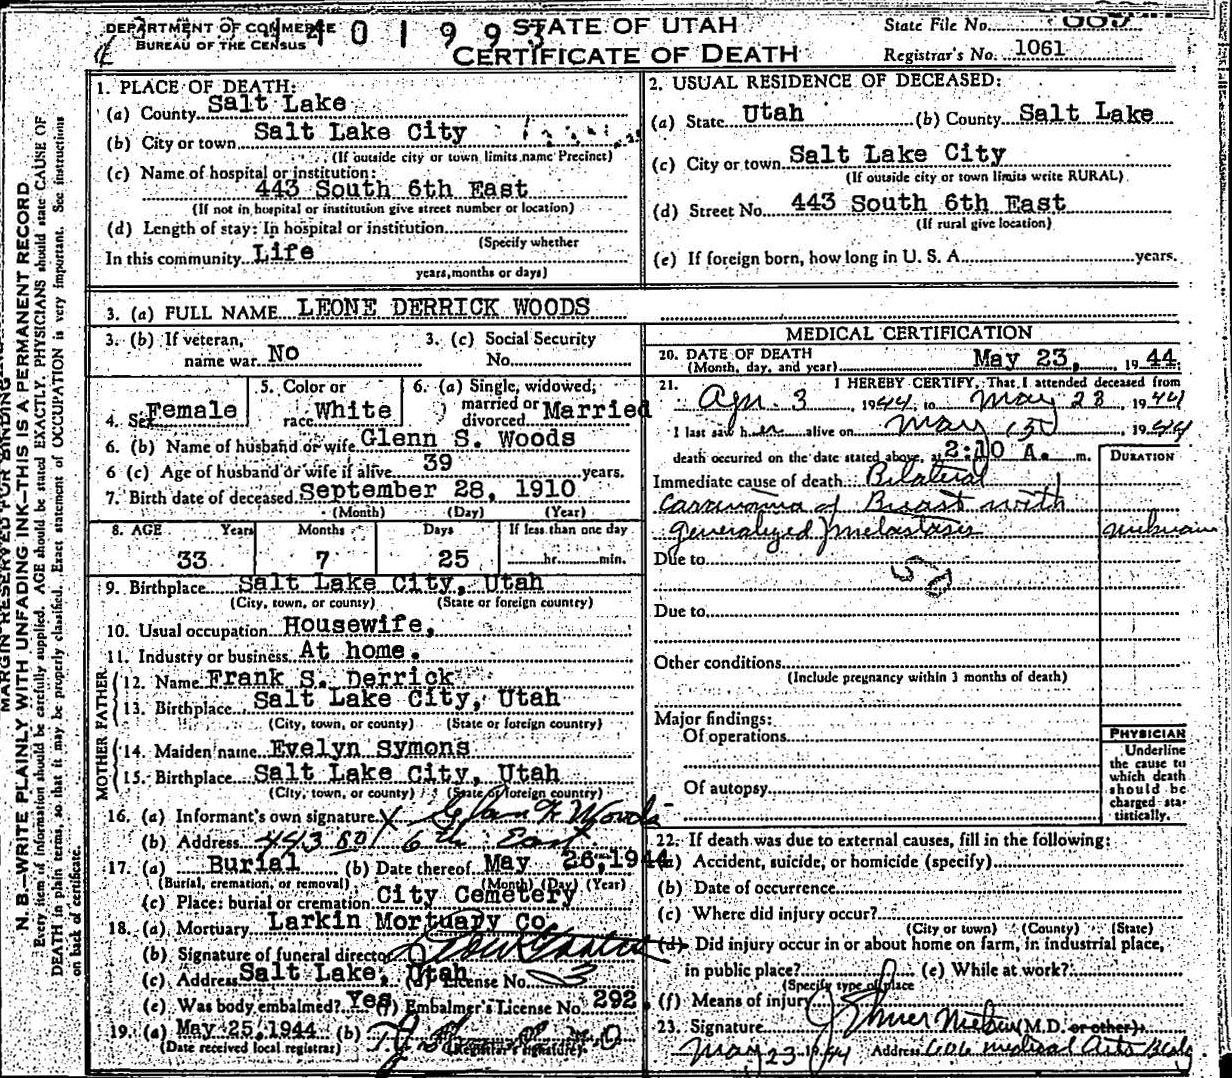 DEPARTMENT OF COMMERCE
BUREAU OF THE CENSUS
STATE OF UTAH
CERTIFICATE OF DEATH
State File No.
Registrar's No. 1061
MARGIN RESERVED FOR BINDING
N. B.—WRITE PLAINLY WITH UNFADING INK—THIS IS A PERMANENT RECORD
Every item of information should be carefully supplied. AGE should be stated EXACTLY. PHYSICIANS should state CAUSE OF
DEATH in plain terms, so that it may be properly classified. Exact statement of OCCUPATION is very important. See instructions
on back of certificate.
1. PLACE OF DEATH:
(a) County Salt Lake
(b) City or town Salt Lake City
(If outside city or town limits name Precinct)
(c) Name of hospital or institution:
443 South 6th East
(If not in hospital or institution give street number or location)
(d) Length of stay: In hospital or institution
(Specify whether
In this community Life
years, months or days)
2. USUAL RESIDENCE OF DECEASED:
(a) State Utah (b) County Salt Lake
(c) City or town Salt Lake City
(If outside city or town limits write RURAL)
(d) Street No. 443 South 6th East
(If rural give location)
(e) If foreign born, how long in U. S. A. years.
3. (a) FULL NAME LEONE DERRICK WOODS
3. (b) If veteran, name war No
3. (c) Social Security No.
4. Sex Female
5. Color or race White
6. (a) Single, widowed, married or divorced Married
6. (b) Name of husband or wife Glenn S. Woods
6 (c) Age of husband or wife if alive 39 years.
7. Birth date of deceased September 28, 1910
(Month) (Day) (Year)
8. AGE Years Months Days If less than one day
33 7 25 hr. min.
9. Birthplace Salt Lake City, Utah
(City, town, or county) (State or foreign country)
10. Usual occupation Housewife,
11. Industry or business At home.
FATHER
12. Name Frank S. Derrick
13. Birthplace Salt Lake City, Utah
(City, town, or county) (State or foreign country)
MOTHER
14. Maiden name Evelyn Symons
15. Birthplace Salt Lake City, Utah
(City, town, or county) (State or foreign country)
16. (a) Informant's own signature X Woods
(b) Address 443 So 6th East
17. (a) Burial (b) Date thereof May 26, 1944
(Burial, cremation, or removal) (Month) (Day) (Year)
(c) Place: burial or cremation City Cemetery
18. (a) Mortuary Larkin Mortuary Co
(b) Signature of funeral director
(c) Address Salt Lake, Utah (d) License No.
(e) Was body embalmed? Yes (f) Embalmer's License No. 292.
19. (a) May 25, 1944 (b)
(Date received local registrar) (Registrar's signature)
MEDICAL CERTIFICATION
20. DATE OF DEATH May 23, 1944
(Month, day, and year)
21. I HEREBY CERTIFY, That I attended deceased from
Apr. 3 1944, to May 23, 1944
I last saw her alive on May 1944
death occurred on the date stated above, at 2:10 A. m.
DURATION
Immediate cause of death Bilateral
carcinoma of Breast with
generalized metastases
Due to
Due to
Other conditions
(Include pregnancy within 3 months of death)
Major findings:
Of operations
Of autopsy
PHYSICIAN
Underline
the cause to
which death
should be
charged sta-
tistically.
22. If death was due to external causes, fill in the following:
(a) Accident, suicide, or homicide (specify)
(b) Date of occurrence
(c) Where did injury occur?
(City or town) (County) (State)
(d) Did injury occur in or about home on farm, in industrial place,
in public place? (e) While at work?
(Specify type of place
(f) Means of injury
23. Signature (M.D. or other)
May 23 1944 Address 606 Medical Arts Bldg